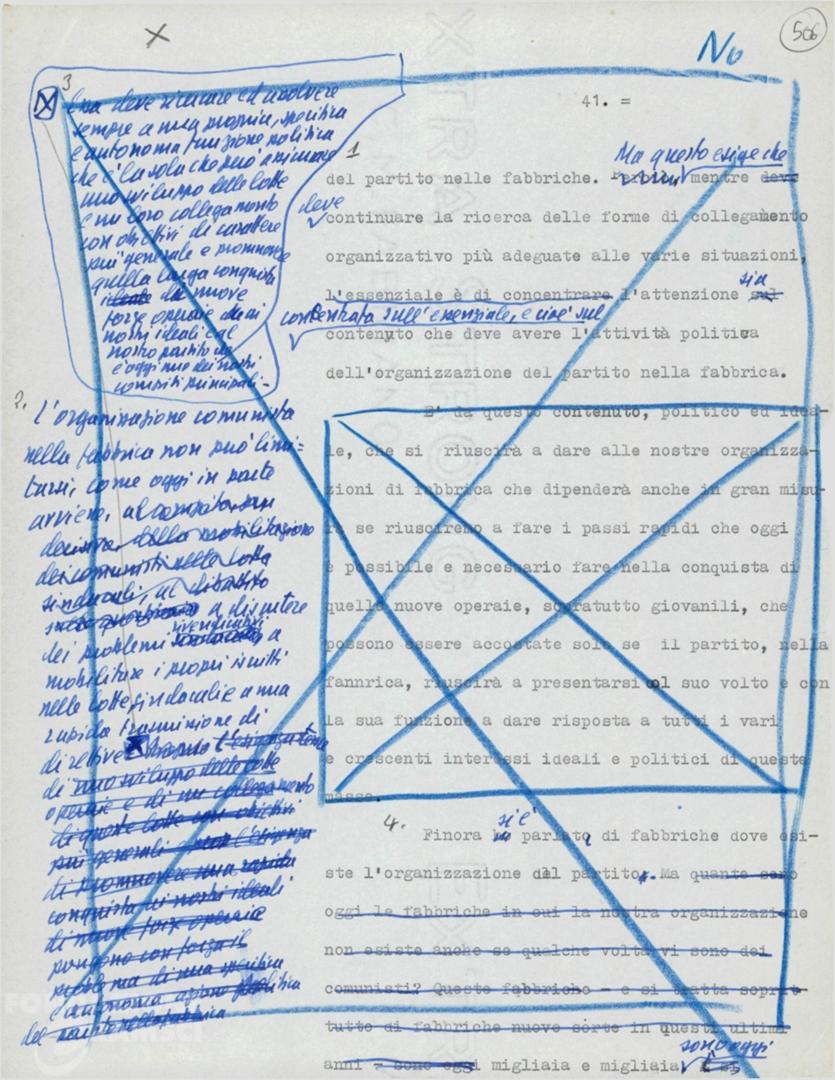 506
No
41. =
3
Essa deve riuscire ed assolvere
sempre a una propria, specifica
e autonoma funzione politica
che è la sola che può assicurare
uno sviluppo delle lotte
e un loro collegamento
con obiettivi di carattere
più generale e promuovere
quella larga conquista
di nuove
forze operaie ai
nostri ideali e al
nostro partito che
è oggi uno dei nostri
compiti principali.
2. L'organizzazione comunista
nella fabbrica non può limi-
tarsi, come oggi in parte
avviene, al compito,
della mobilitazione
dei comunisti nelle lotte
sindacali, al dibattito
a discutere
dei problemi rivendicativi a
mobilitare i propri iscritti
nelle lotte sindacali e a una
rapida trasmissione di
direttive
di uno sviluppo delle lotte
operaie e di un collegamento
di queste lotte con obiettivi
più generali
di promuovere una rapida
conquista ai nostri ideali
di nuove forze operaie
pongono con forza il
problema di una specifica
e autonoma azione politica
del partito nella fabbrica
1
Ma questo esige che
del partito nelle fabbriche. Perciò, mentre deve
deve
continuare la ricerca delle forme di collegamento
organizzativo più adeguate alle varie situazioni,
sia
l'essenziale è di concentrare l'attenzione sul
concentrata sull'essenziale, e cioè sul
contenuto che deve avere l'attività politica
dell'organizzazione del partito nella fabbrica.
E' da questo contenuto, politico ed idea-
le, che si riuscirà a dare alle nostre organizza-
zioni di fabbrica che dipenderà anche in gran misu-
ra se riusciremo a fare i passi rapidi che oggi
è possibile e necessario fare nella conquista di
quelle nuove operaie, sopratutto giovanili, che
possono essere accostate solo se il partito, nella
fannrica, riuscirà a presentarsi col suo volto e con
la sua funzione a dare risposta a tutti i vari
e crescenti interessi ideali e politici di queste
masse.
4.
si è
Finora ho parlato di fabbriche dove esi-
ste l'organizzazione del partito. Ma quante sono
oggi le fabbriche in cui la nostra organizzazione
non esiste anche se qualche volta vi sono dei
comunisti? Queste fabbriche - e si tratta soprat-
tutto di fabbriche nuove sorte in questi ultimi
sono oggi
anni - sono oggi migliaia e migliaia